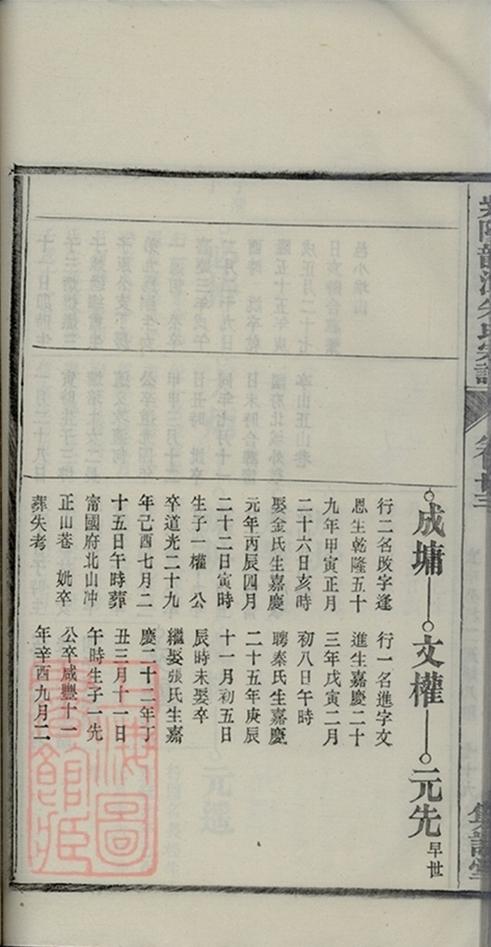 成墉 文權 元先 早世
行二名政字逢
恩生乾隆五十
九年甲寅正月
二十六日亥時
娶金氏生嘉慶
元年丙辰四月
二十二日寅時
生子一權 公
卒道光二十九
年己酉七月二
十五日午時葬
甯國府北山冲
正山菴 妣卒
葬失考
行一名進字文
進生嘉慶二十
三年戊寅二月
初八日午時
聘秦氏生嘉慶
二十五年庚辰
十一月初五日
辰時未娶卒
繼娶張氏生嘉
慶二十二年丁
丑三月十一日
午時生子一先
公卒咸豐十一
年辛酉九月二